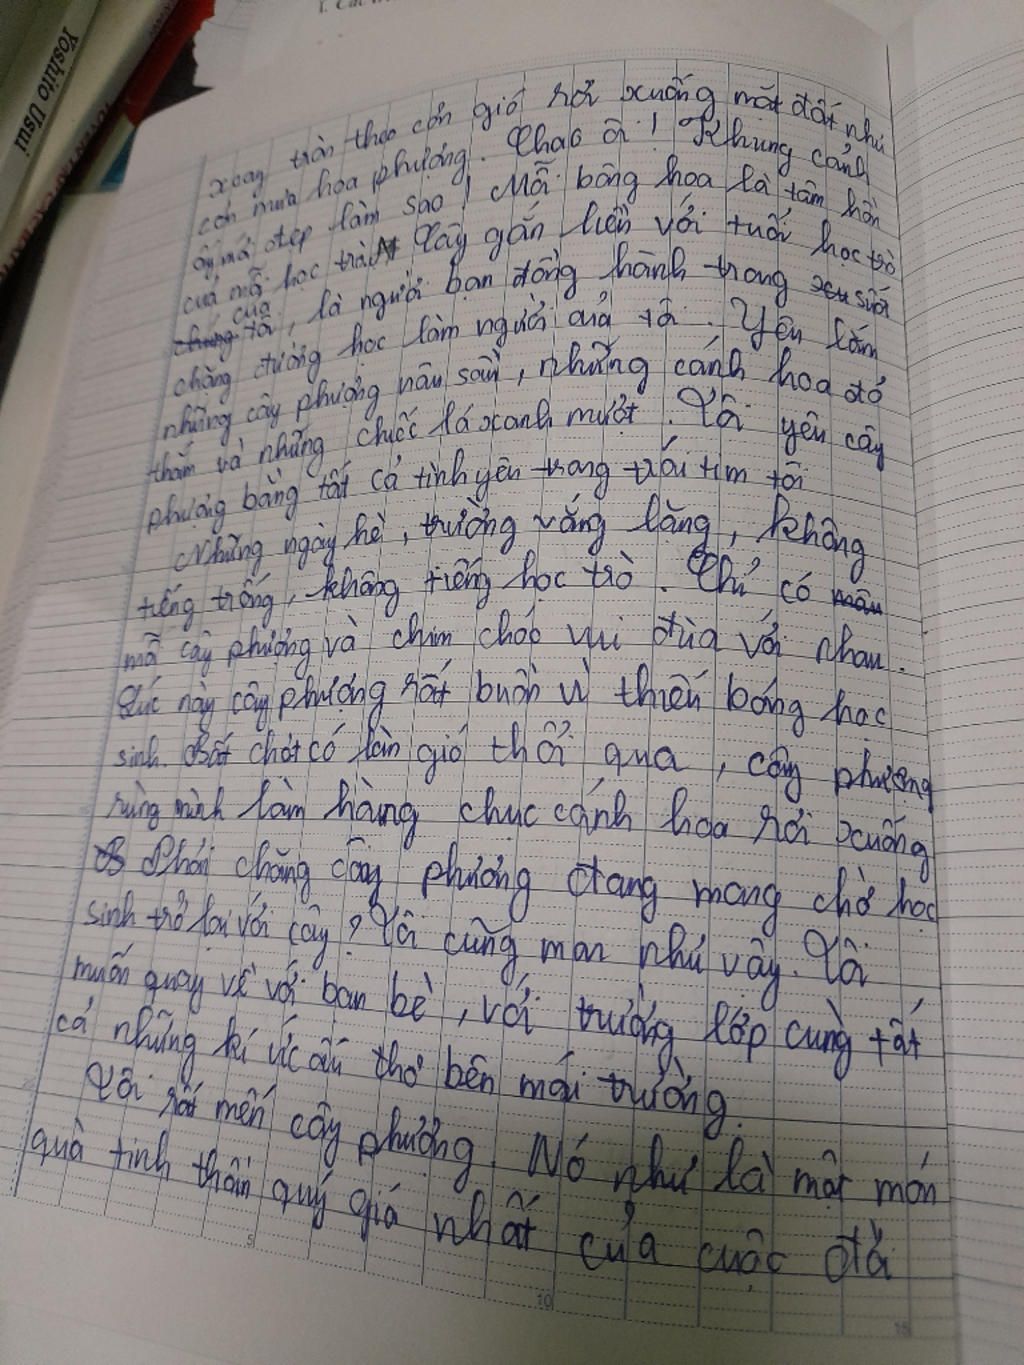 Yoshito Usui
xoay tròn theo cơn gió rơi xuống mặt đất như
cơn mưa hoa phượng. Chao ôi! Khung cảnh
ấy mới đẹp làm sao! Mỗi bông hoa là tâm hồn
của mỗi học trò. Cây gắn liền với tuổi học trò
của tôi, là người bạn đồng hành trong suốt
chặng đường học làm người của tôi. Yêu lắm
những cây phượng nâu sần, những cánh hoa đỏ
thắm và những chiếc lá xanh mượt. Tôi yêu cây
phượng bằng tất cả tình yêu trong trái tim tôi
Những ngày hè, trường vắng lặng, không
tiếng trống, không tiếng học trò. Chỉ có
mỗi cây phượng và chim chóc vui đùa với nhau.
Lúc này cây phượng rất buồn vì thiếu bóng học
sinh. Bất chợt có làn gió thổi qua, cây phượng
rùng mình làm hàng chục cánh hoa rơi xuống
Phải chăng cây phượng đang mong chờ học
sinh trở lại với cây? Tôi cũng mon như vậy. Tôi
muốn quay về với bạn bè, với trường lớp cùng tất
cả những kí ức ấu thơ bên mái trường.
Tôi rất mến cây phượng. Nó như là một món
quà tinh thần quý giá nhất của cuộc đời
5
10
15